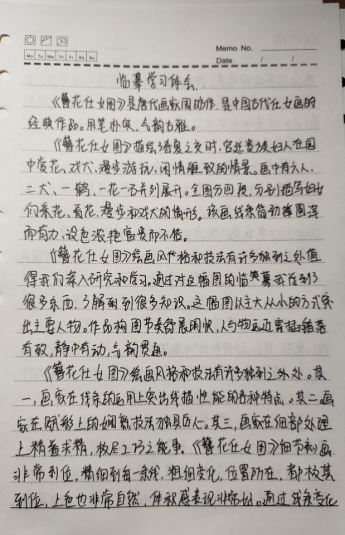 Memo No.
Mo Tu We Th Fr Sa Su
Date / /
临摹学习体会
《簪花仕女图》是唐代画家周昉作，是中国古代仕女画的
经典作品。用笔朴实，气韵古雅。
《簪花仕女图》描绘暮春之时，宫廷贵族妇人在园
中赏花、戏犬、漫步游玩，闲情雅致的情景。画中有六人，
二犬、一鹤，一花一石并列展开。全图分四段，分别描写妇女
们采花、看花、漫步和戏犬的情形。该画线条简劲圆浑
而有力，设色浓艳富贵而不俗。
《簪花仕女图》绘画风格和技法有许多独到之处值
得我们深入研究和学习。通过对这幅图的临摹我学到了
很多东西，了解到到很多知识。这幅图以主大从小的方式突
出主要人物。作品构图节奏舒展闲状，人与物远近穿插错落
有致，静中有动，气韵贯通。
《簪花仕女图》绘画风格和技法有许多独到之处。其
一，画家在线条的运用上突出线描性能的各种特点。其二画
家在赋彩上的娴熟技法独具匠人。其三，画家在细部处理
上精益求精，极尽工巧之能事。《簪花仕女图》细节刻画
非常到位，精细到每一条线，粗细变化，位置所在，都极其
到位，上色也非常自然，体积感表现非常好。通过线条变化